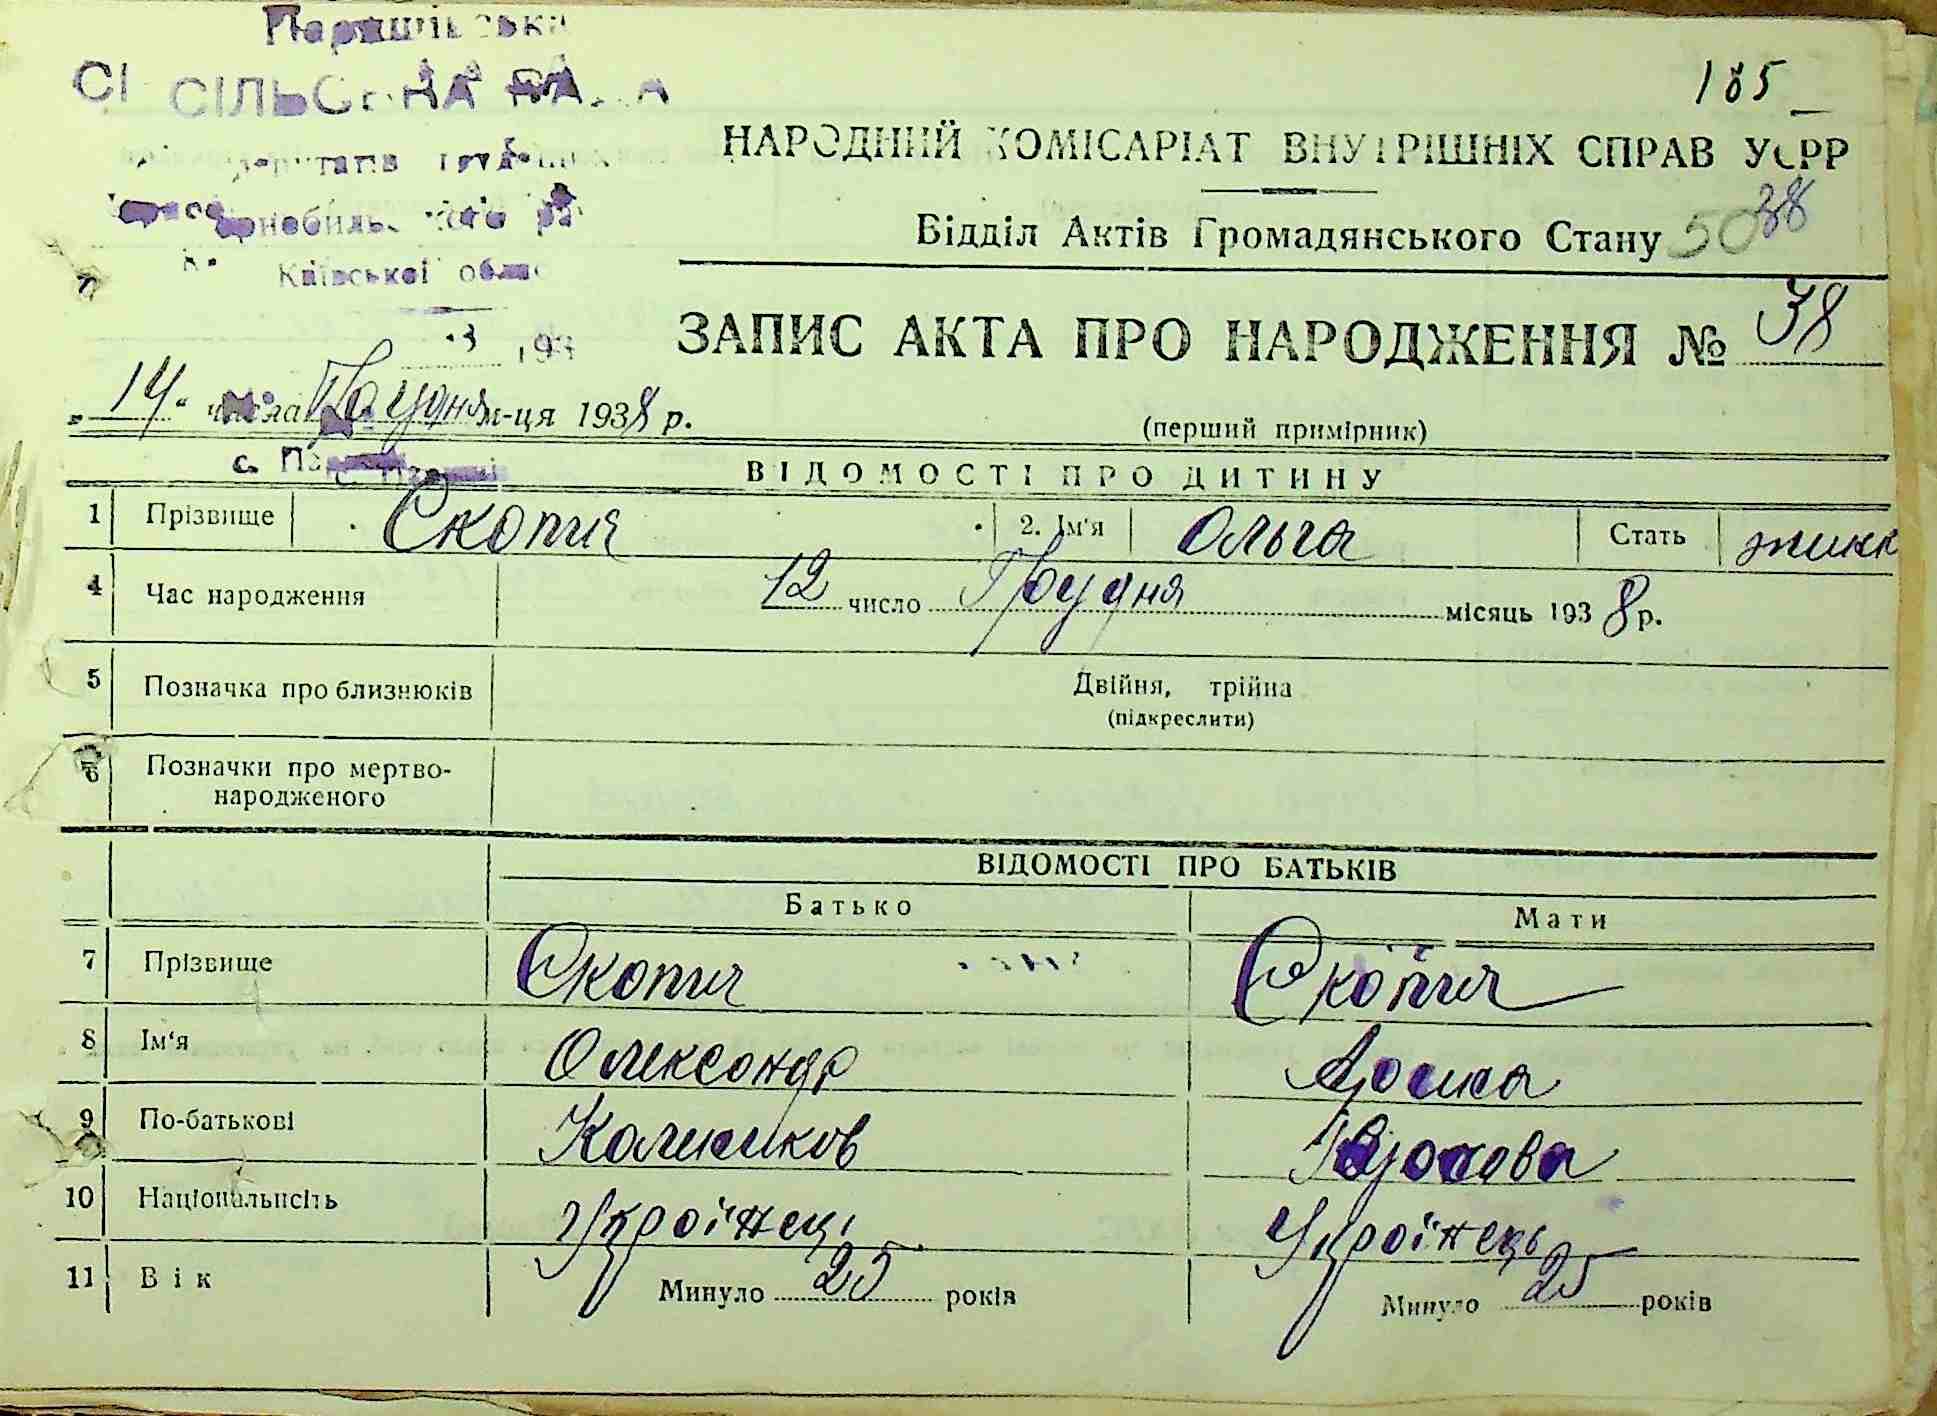 СІЛЬСЬКА РАДА
165
НАРОДНИЙ КОМІСАРІАТ ВНУТРІШНІХ СПРАВ УСРР
Відділ Актів Громадянського Стану 50 38
Київської
ЗАПИС АКТА ПРО НАРОДЖЕННЯ № 38
193
„14“ числа Грудня м-ця 1938 р.
(перший примірник)
с.
ВІДОМОСТІ ПРО ДИТИНУ
1 Прізвище Скопич 2. Ім'я Ольга Стать жинк
4 Час народження 12 число Грудня місяць 1938 р.
5 Позначка про близнюків Двійня, трійна
(підкреслити)
6 Позначки про мертво-
народженого
ВІДОМОСТІ ПРО БАТЬКІВ
Батько Мати
7 Прізвище Скопич Скопич
8 Ім'я Олександр
9 По-батькові
10 Національність Українець Українець
11 Вік Минуло 25 років Минуло 25 років